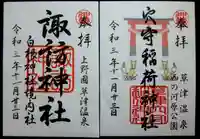 奉拝
上野國 草津温泉
諏訪神社
白根神社境内社
令和三年十一月廿三日
奉拝
草津温泉
西の河原公園
穴守稲荷神社
令和三年十一月廿三日